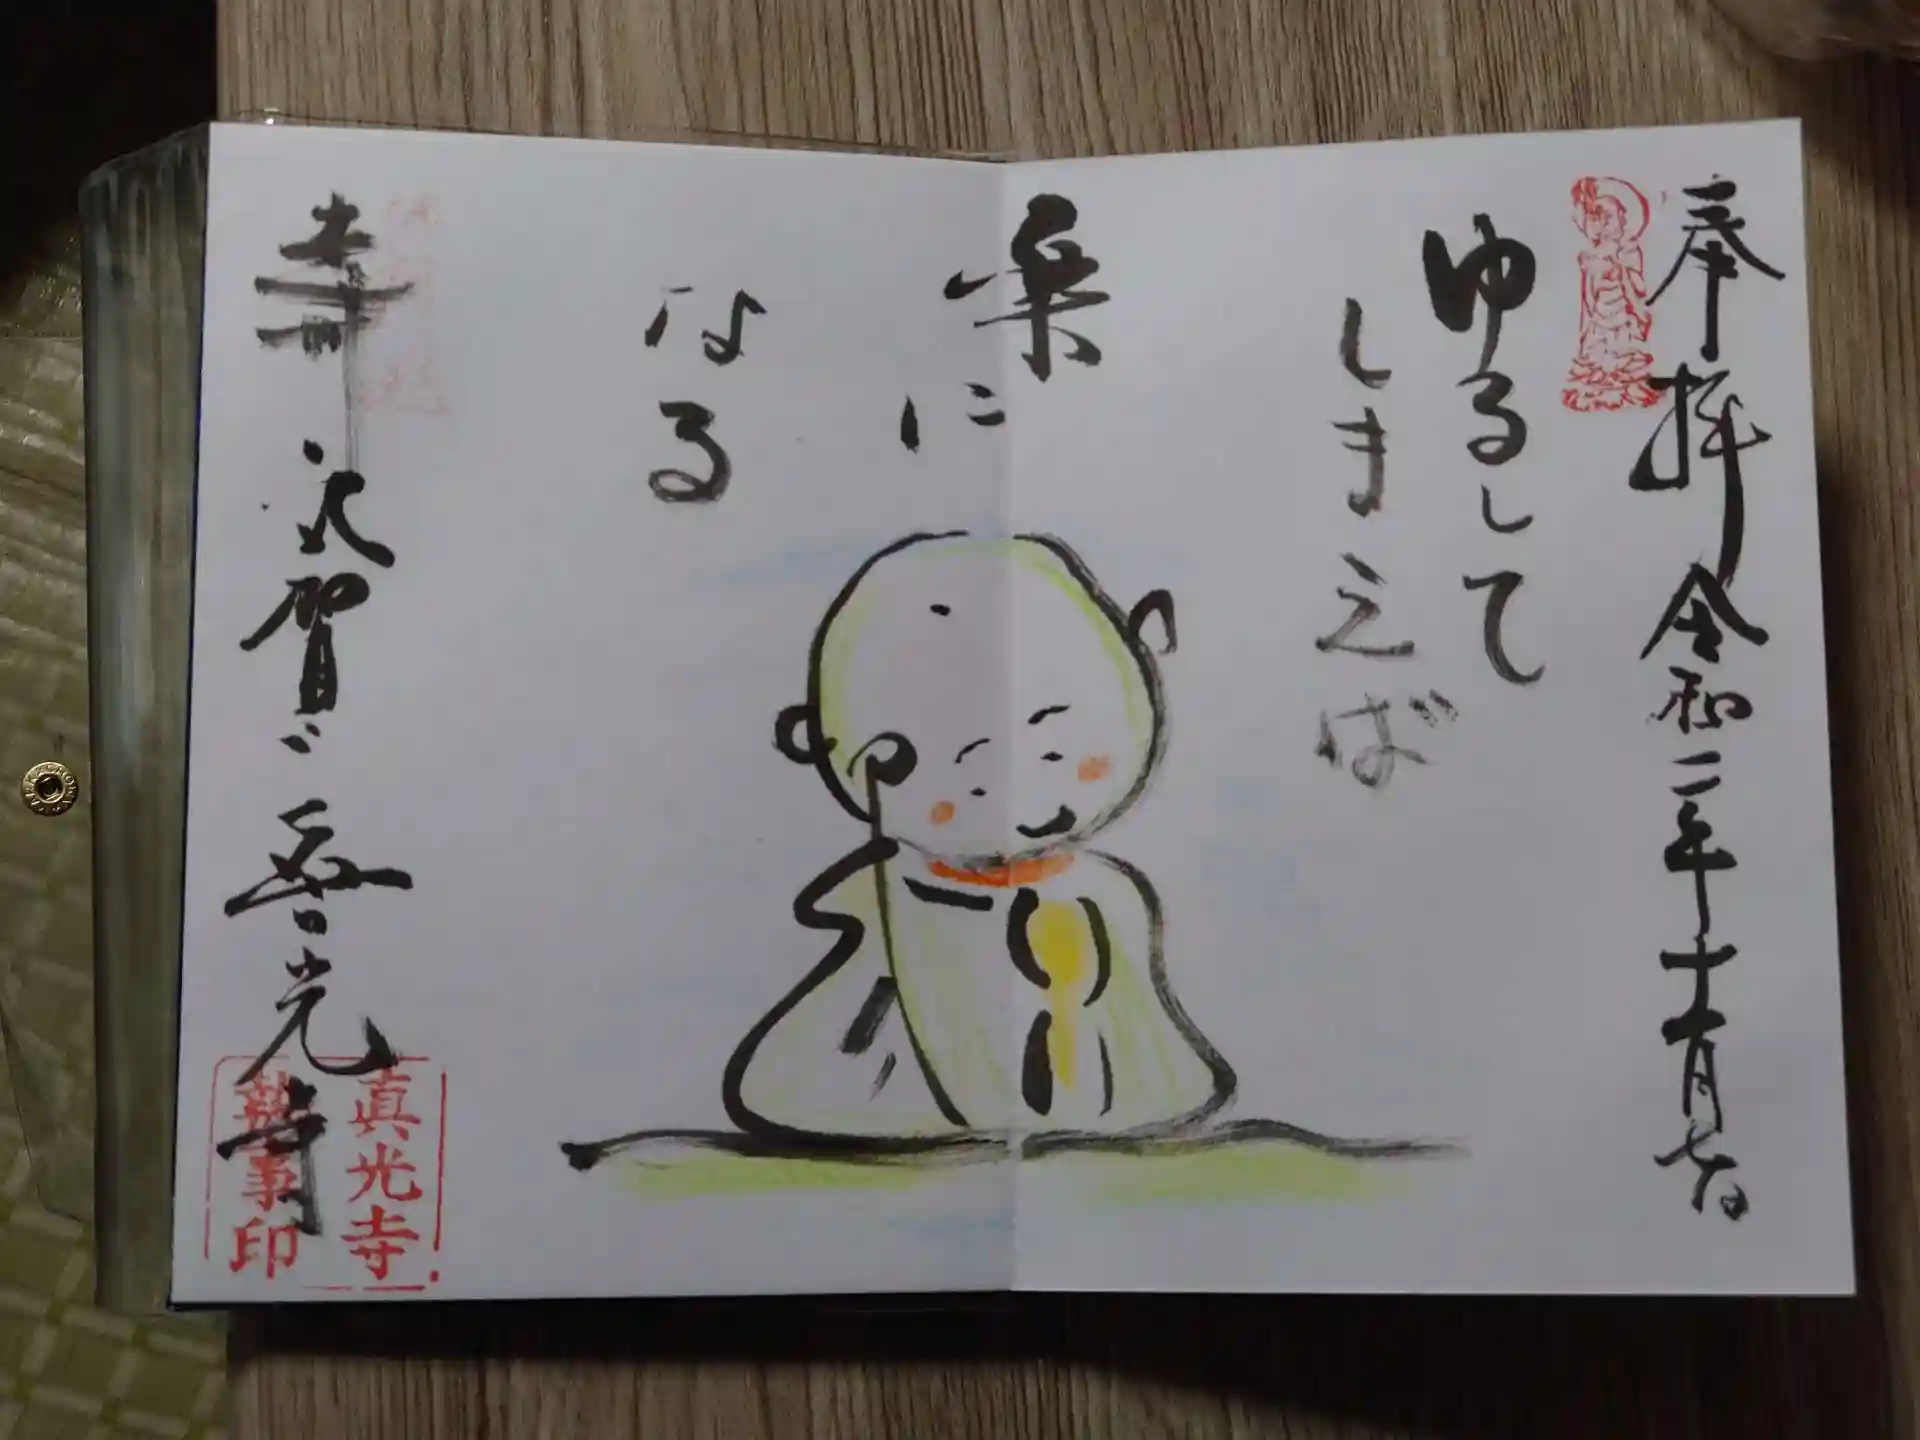 奉拝 令和二年十一月七日
ゆるして
しまえば
楽に
なる
光寺
眞光寺
執事印